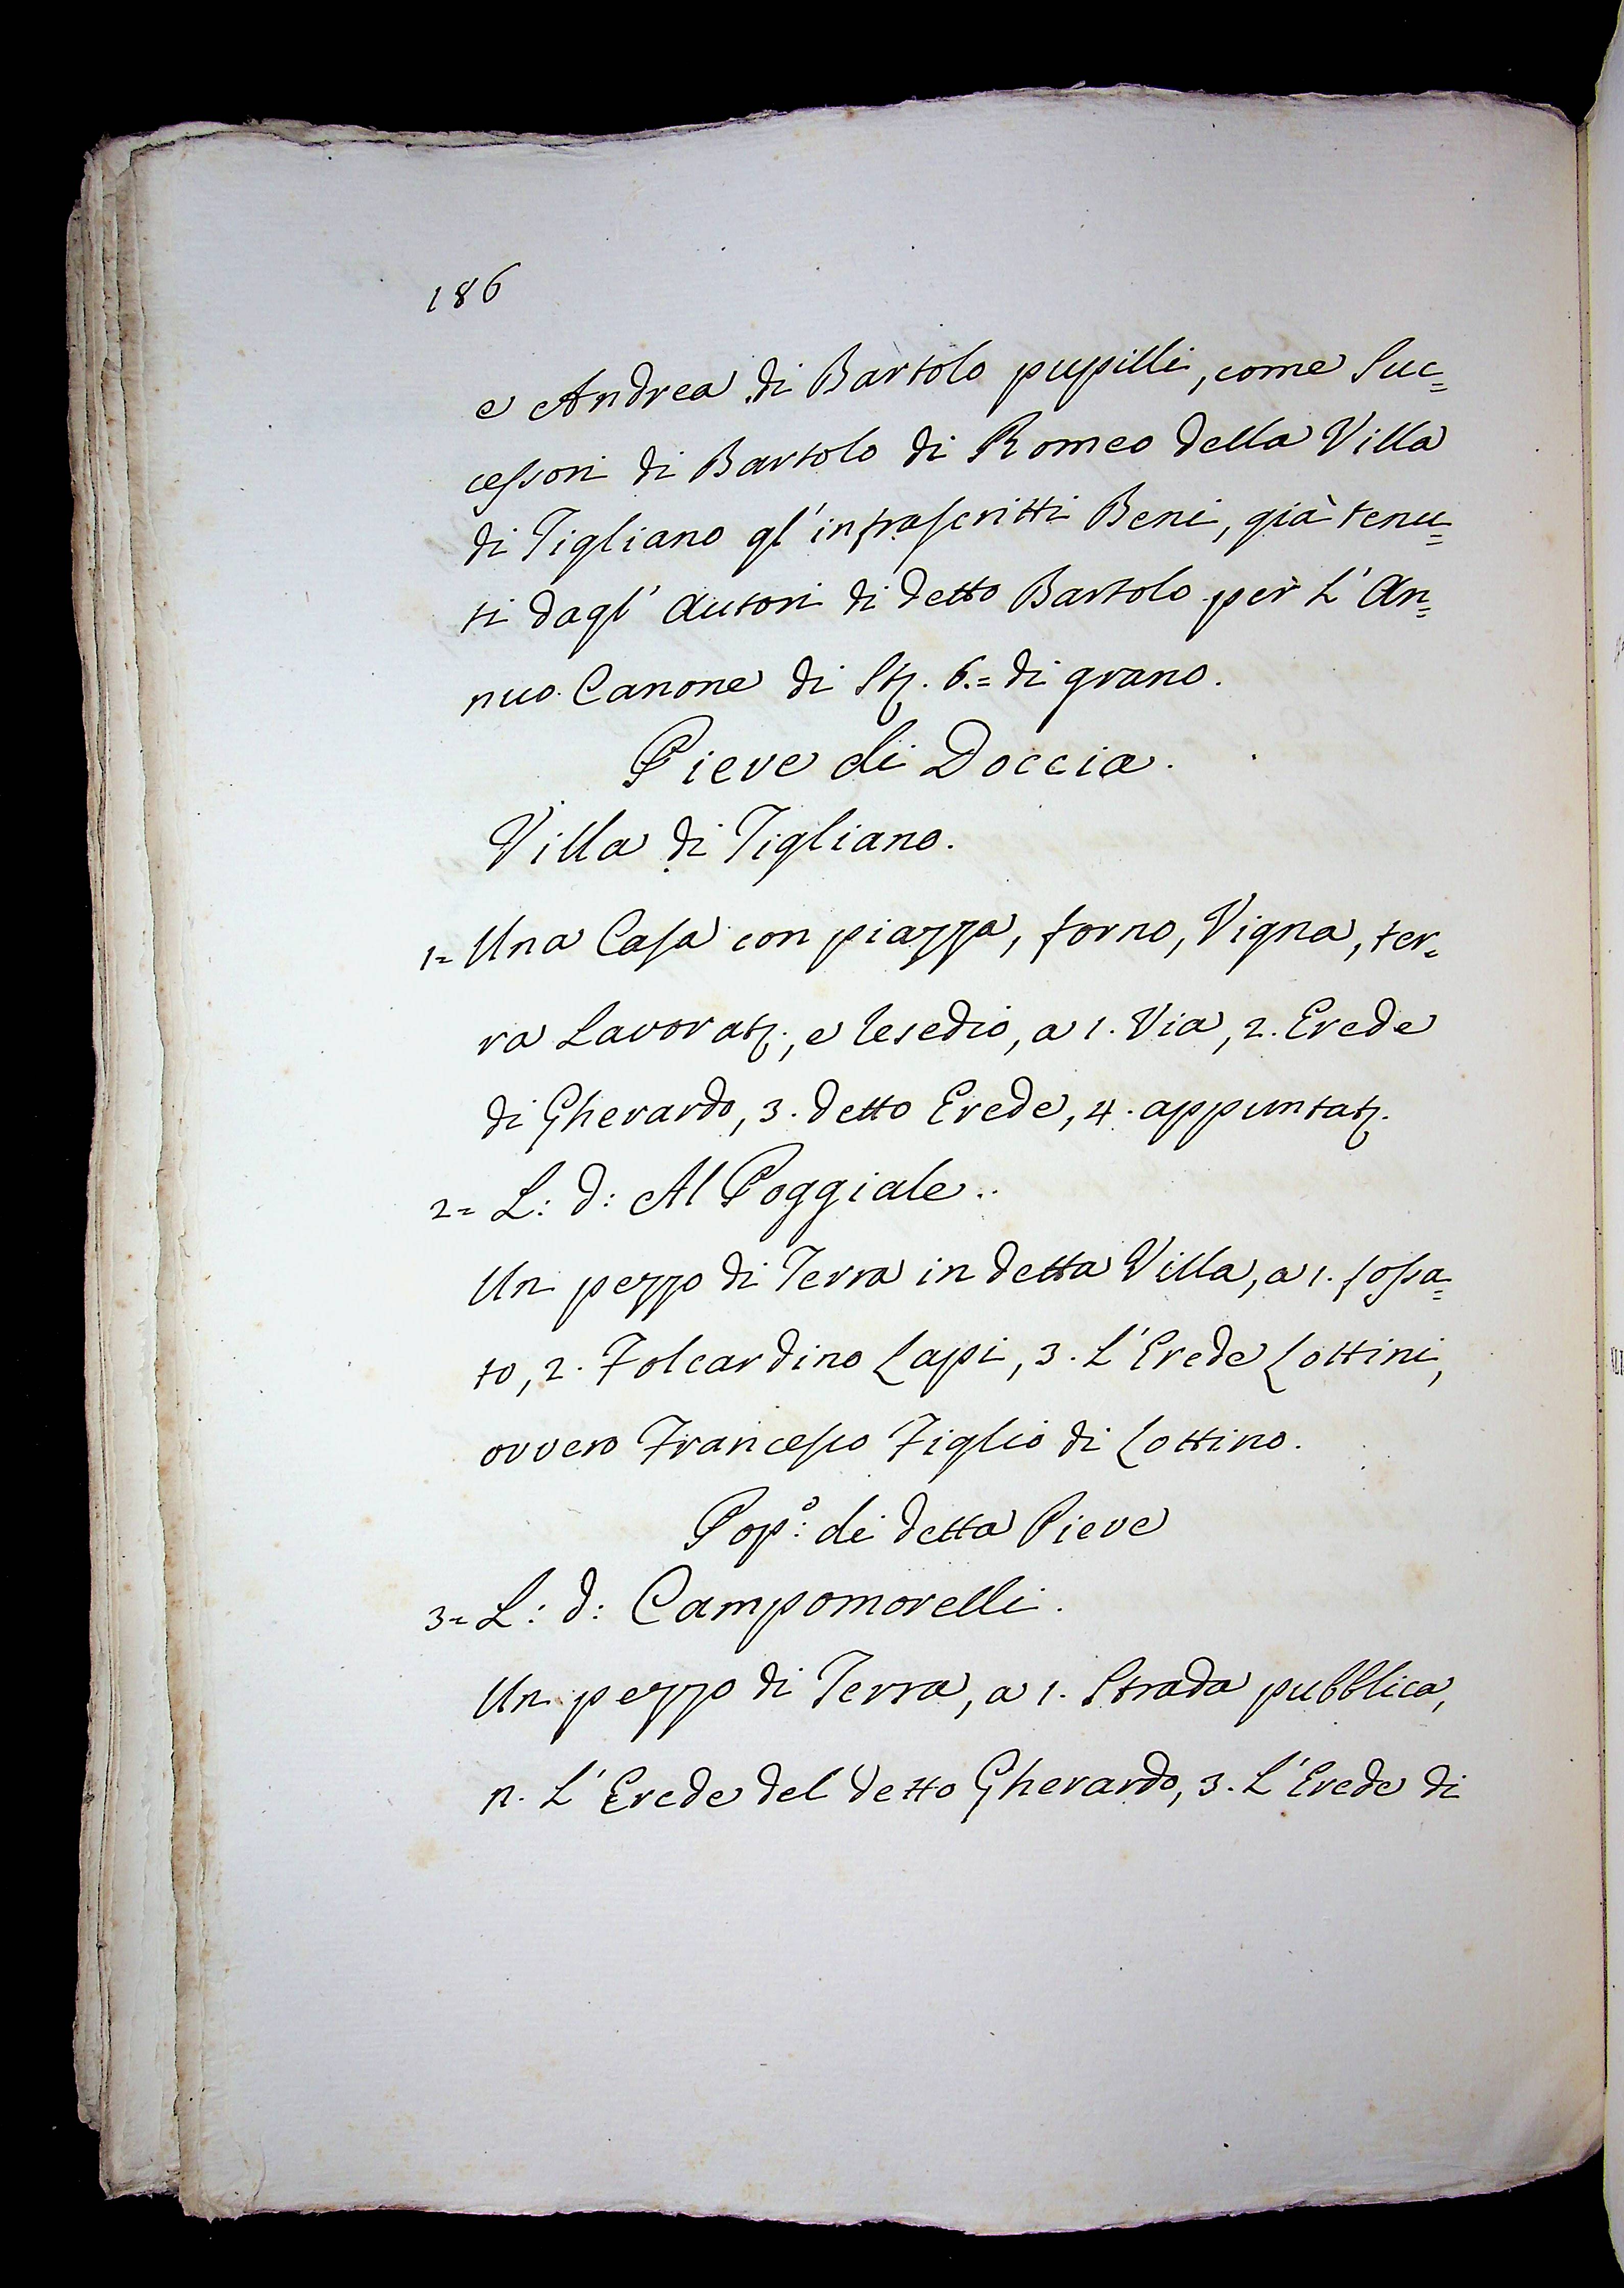 186
e Andrea di Bartolo pupilli, come Suc=
cessori di Bartolo di Romeo della Villa
di Tigliano gl'infrascritti Beni, già tenu=
ti dagl'Autori di detto Bartolo per L'An=
nuo Canone di Stj. 6.= di grano.
Pieve di Doccia.
Villa di Tigliano.
1= Una Casa con piazza, forno, Vigna, ter=
ra Lavoratj., e Resedio, a 1. Via, 2. Erede
di Gherardo, 3. detto Erede, 4. appuntatj.
2= L: d: Al Poggiale.
Un pezzo di Terra in detta Villa, a 1. fossa=
to, 2. Folcardino Lapi, 3. L'Erede Lottini,
ovvero Francesco Figlio di Lottino.
Pop.º: di detta Pieve
3= L: d: Campomorelli.
Un pezzo di Terra, a 1. Strada pubblica,
n. L'Erede del detto Gherardo, 3. L'Erede di